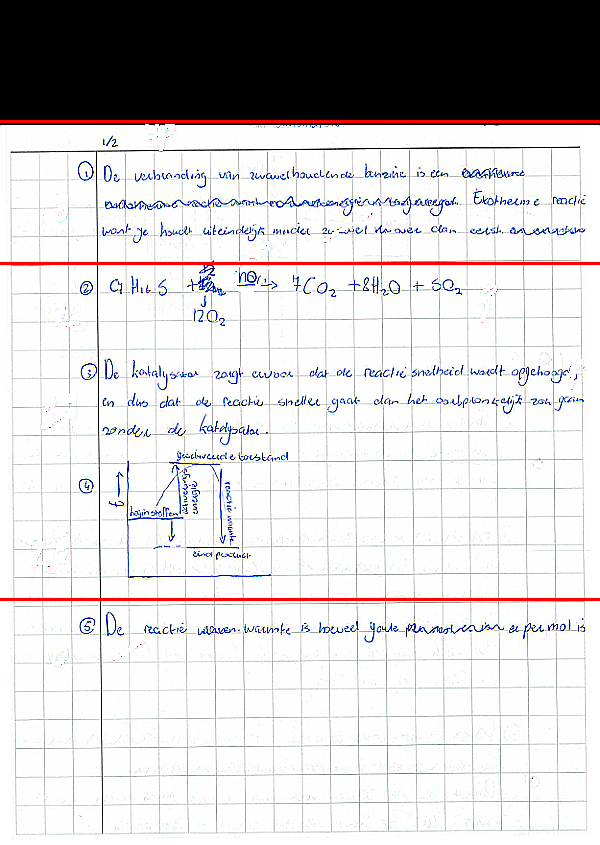 1/2
① De verbranding van zwavelhoudende benzine is een
Exotherme reactie
want je houdt uiteindelijk minder over dan eerst.
② C7 H16 S + 12O2 → 7CO2 + 8H2O + SO2
③ De katalysator zorgt ervoor dat de reactiesnelheid wordt opgehoogd,
en dus dat de reactie sneller gaat dan het oorspronkelijk zou gaan
zonder de katalysator.
geactiveerde toestand
④ E
beginstoffen
activerings
energie
reactie warmte
eindproduct
⑤ De reactie warmte is hoeveel joule er per mol is